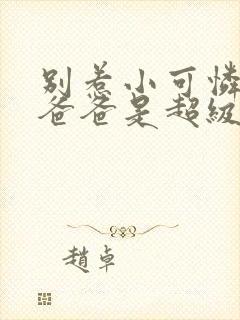 别惹小可憐
爸爸是超級
趙卓